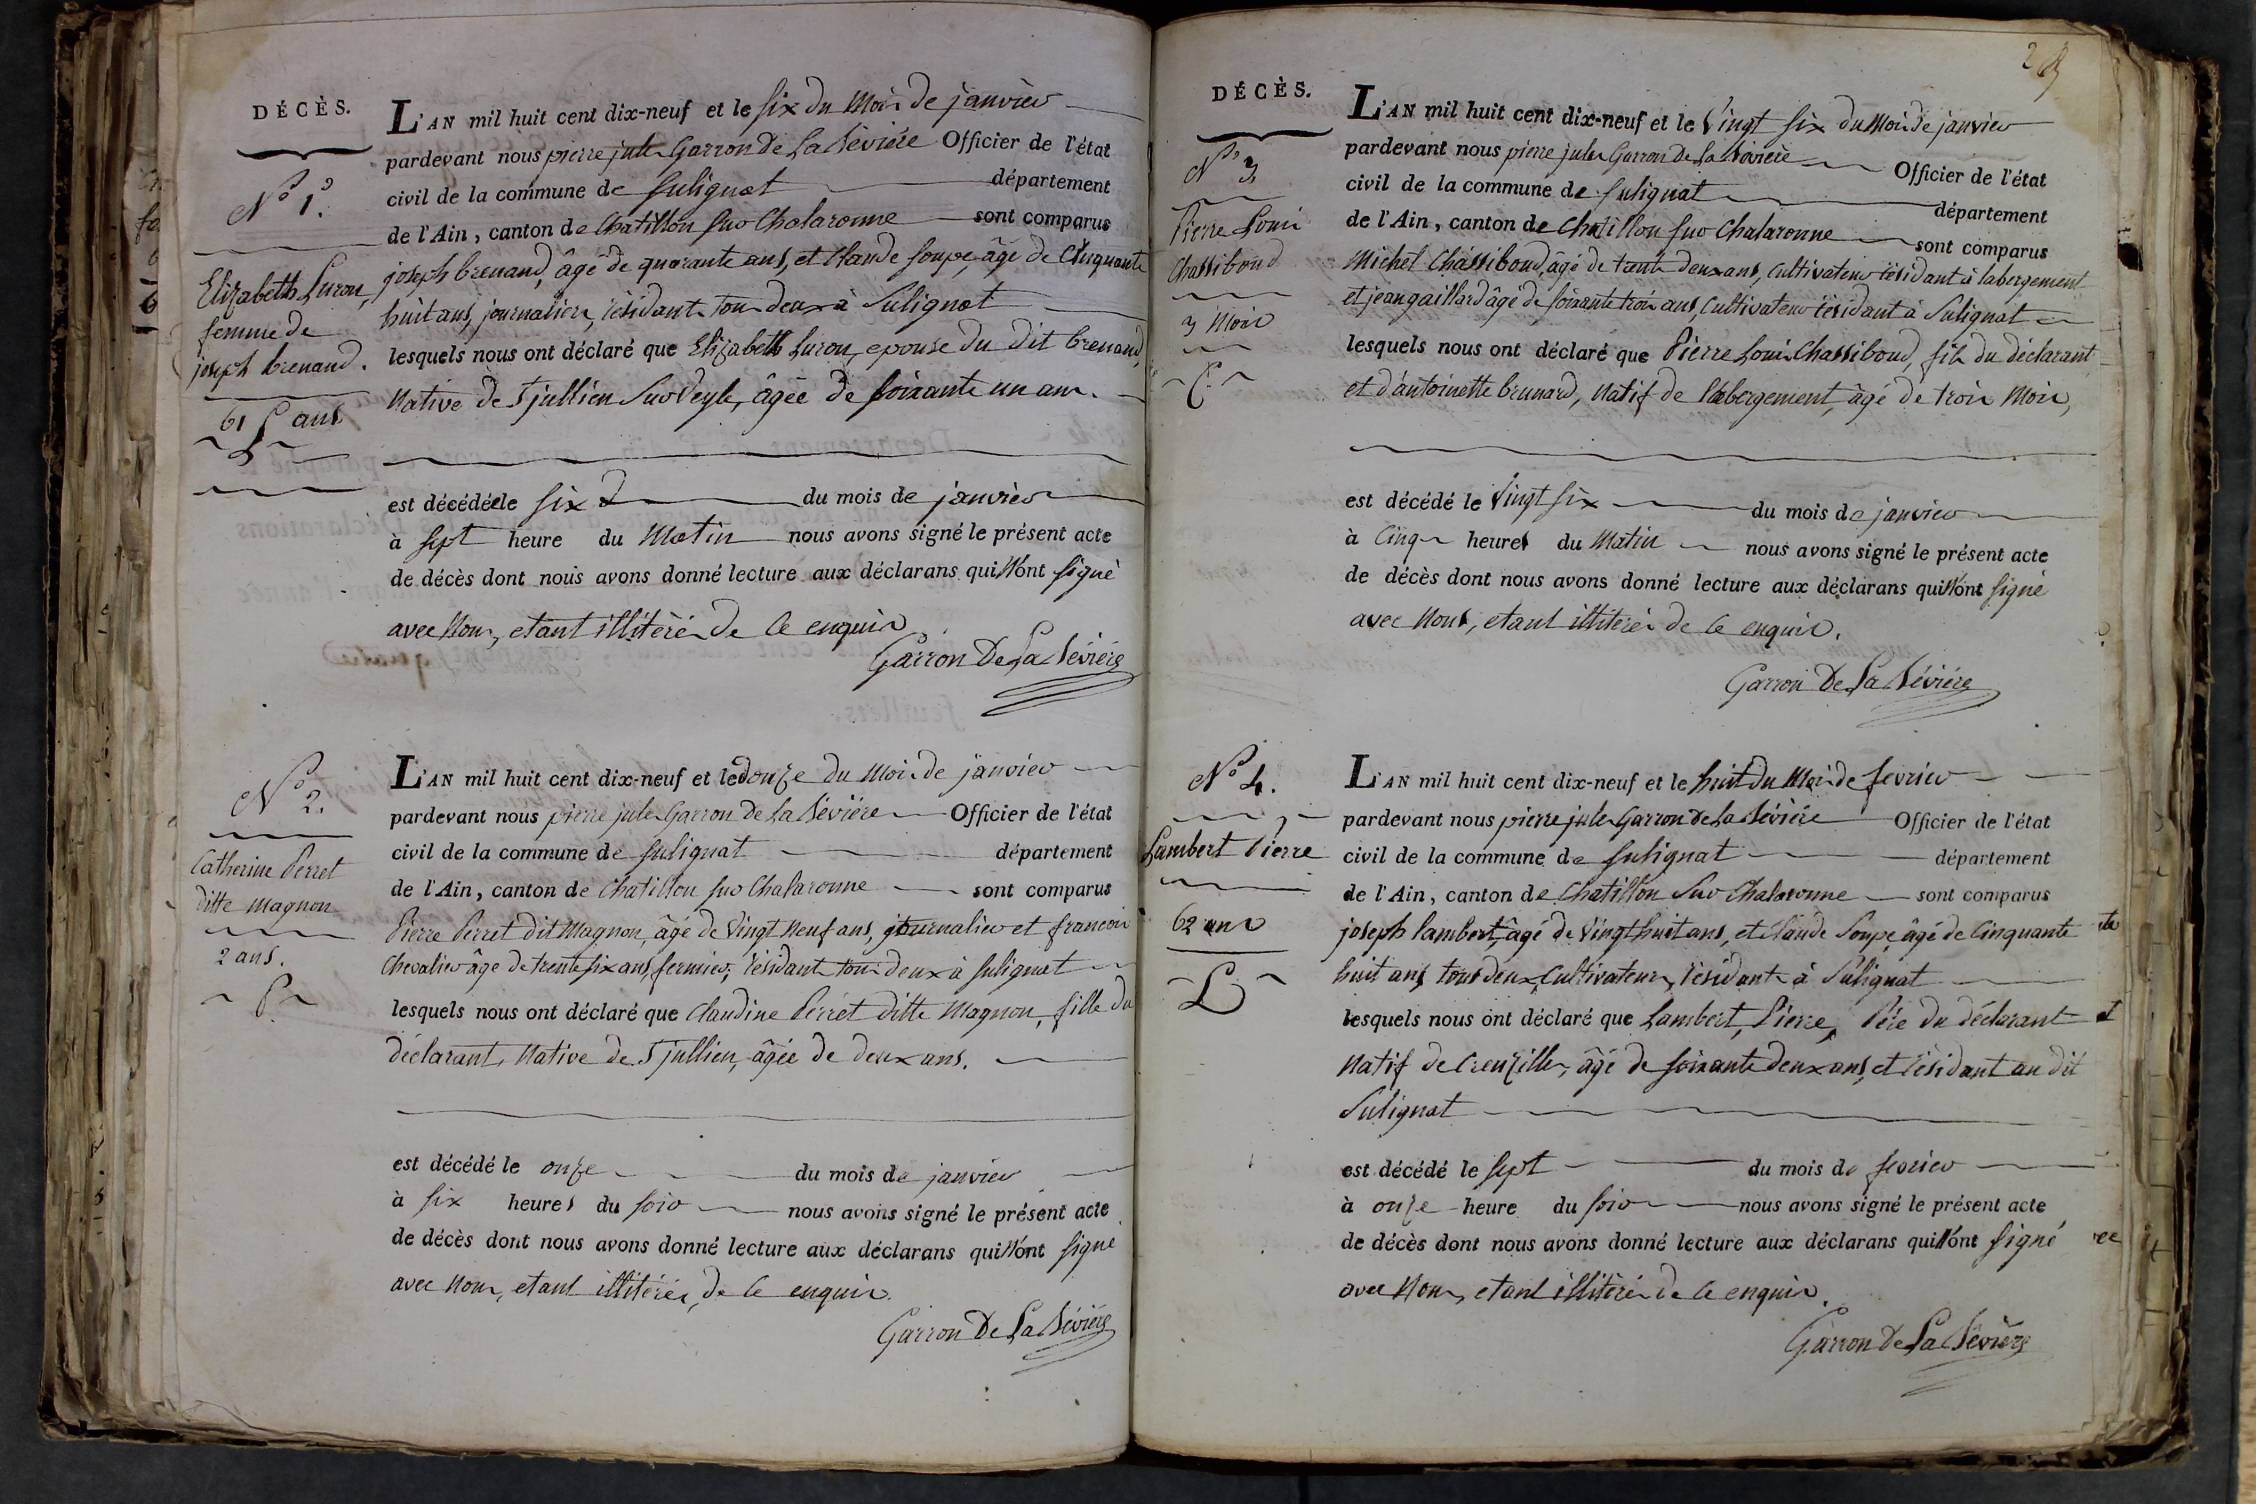 DÉCÈS.
N° 1.
Elizabeth Luron,
femme de
joseph brenand.
61 ans
L'AN mil huit cent dix-neuf et le six du Mois de janvier
pardevant nous pierre jules Garron de La Bévière Officier de l'état
civil de la commune de Sulignat département
de l'Ain, canton de Chatillon sur Chalaronne sont comparus
joseph brenand, âgé de quarante ans, et Claude Soupe, âgé de Cinquante
huit ans, journaliers, résidants tous deux à Sulignat
lesquels nous ont déclaré que Elizabeth Luron, epouse du dit brenand,
Native de St jullien sur Veyle, âgée de soixante un ans.
est décédée le six du mois de janvier
à sept heure du Matin nous avons signé le présent acte
de décès dont nous avons donné lecture aux déclarans qui N'ont signé
avec Nous, etant illitérés de ce enquis
Garron De La Bévière
N° 2.
Catherine Perret
ditte Magnon
2 ans.
L'AN mil huit cent dix-neuf et le douze du Mois de janvier
pardevant nous pierre jules Garron de La Bévière Officier de l'état
civil de la commune de Sulignat département
de l'Ain, canton de Chatillon sur Chalaronne sont comparus
Pierre Perret dit Magnon, âgé de Vingt Neuf ans, journalier et francois
Chevalier âge de trente six ans, fermier, résidant tous deux à Sulignat
lesquels nous ont déclaré que Claudine Perret ditte Magnon, fille du
déclarant, Native de St jullien, âgée de deux ans.
est décédé le onze du mois de janvier
à six heures du soir nous avons signé le présent acte
de décès dont nous avons donné lecture aux déclarans qui N'ont signé
avec Nous, etant illitérés, de ce enquis.
Garron De La Bévière
DÉCÈS.
N° 3
Pierre Louis
Chassiboud
3 Mois
L'AN mil huit cent dix-neuf et le Vingt six du Mois de janvier
pardevant nous pierre jules Garron De La Bévière Officier de l'état
civil de la commune de Sulignat département
de l'Ain, canton de Chatillon sur Chalaronne sont comparus
Michel Chassiboud, âgé de trente deux ans, Cultivateur résidant à labergement
et jean gaillard âgé de soixante trois ans, Cultivateur résidant à Sulignat
lesquels nous ont déclaré que Pierre Louis Chassiboud, fils du déclarant
et d'antoinette brunard, Natif de l'abergement, âgé de trois Mois,
est décédé le Vingt six du mois de janvier
à Cinq heures du Matin nous avons signé le présent acte
de décès dont nous avons donné lecture aux déclarans qui N'ont signé
avec Nous, etant illitérés de ce enquis.
Garron De La Bévière
N° 4.
Lambert Pierre
62 ans
L'AN mil huit cent dix-neuf et le huit du Mois de fevrier
pardevant nous pierre jules Garron de La Bévière Officier de l'état
civil de la commune de Sulignat département
de l'Ain, canton de Chatillon sur Chalaronne sont comparus
joseph lambert, âgé de Vingt huit ans, et Claude Soupe, âgé de Cinquante
huit ans tous deux Cultivateurs, résidants à Sulignat
lesquels nous ont déclaré que Lambert, Pierre, Père du déclarant
Natif de Cruzilles, âgé de soixante deux ans, et résidant au dit
Sulignat
est décédé le sept du mois de fevrier
à onze heure du soir nous avons signé le présent acte
de décès dont nous avons donné lecture aux déclarans qui N'ont signé
avec Nous, etant illitérés de ce enquis.
Garron de La Bévière